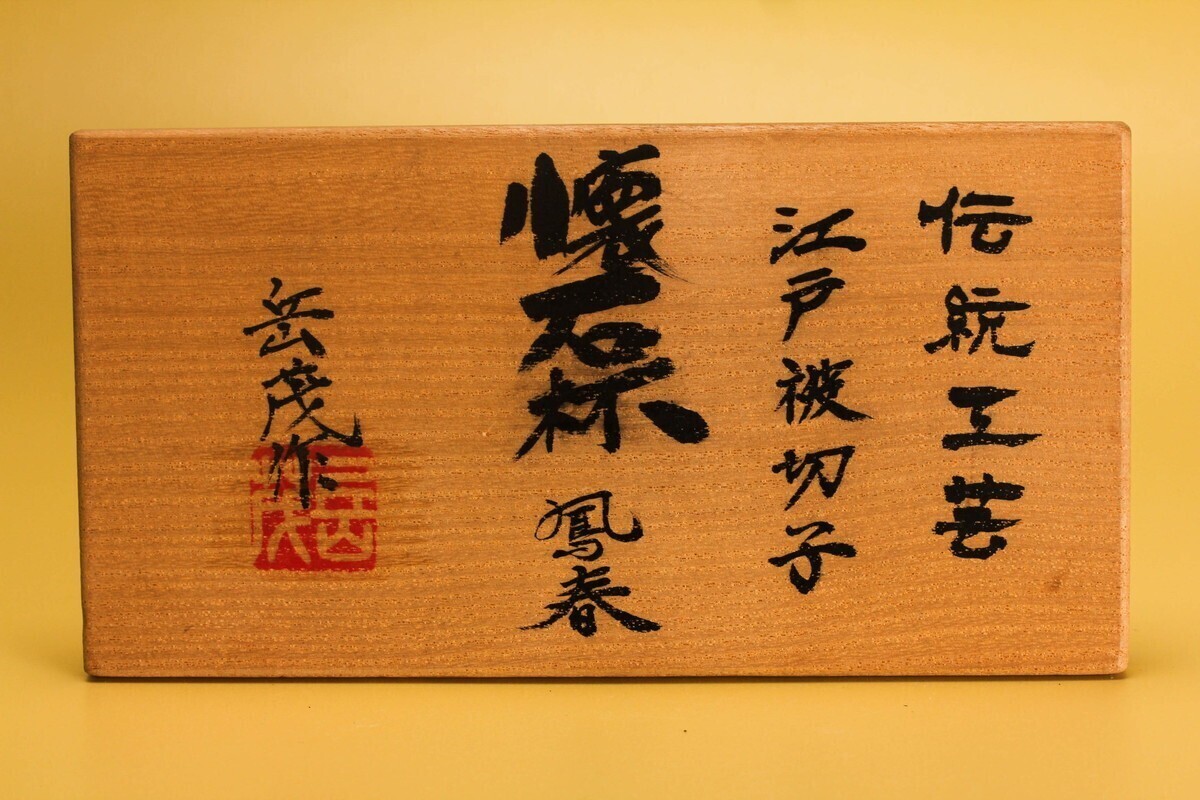 伝統工芸
江戸被切子
懐石杯 鳳春
岳茂作